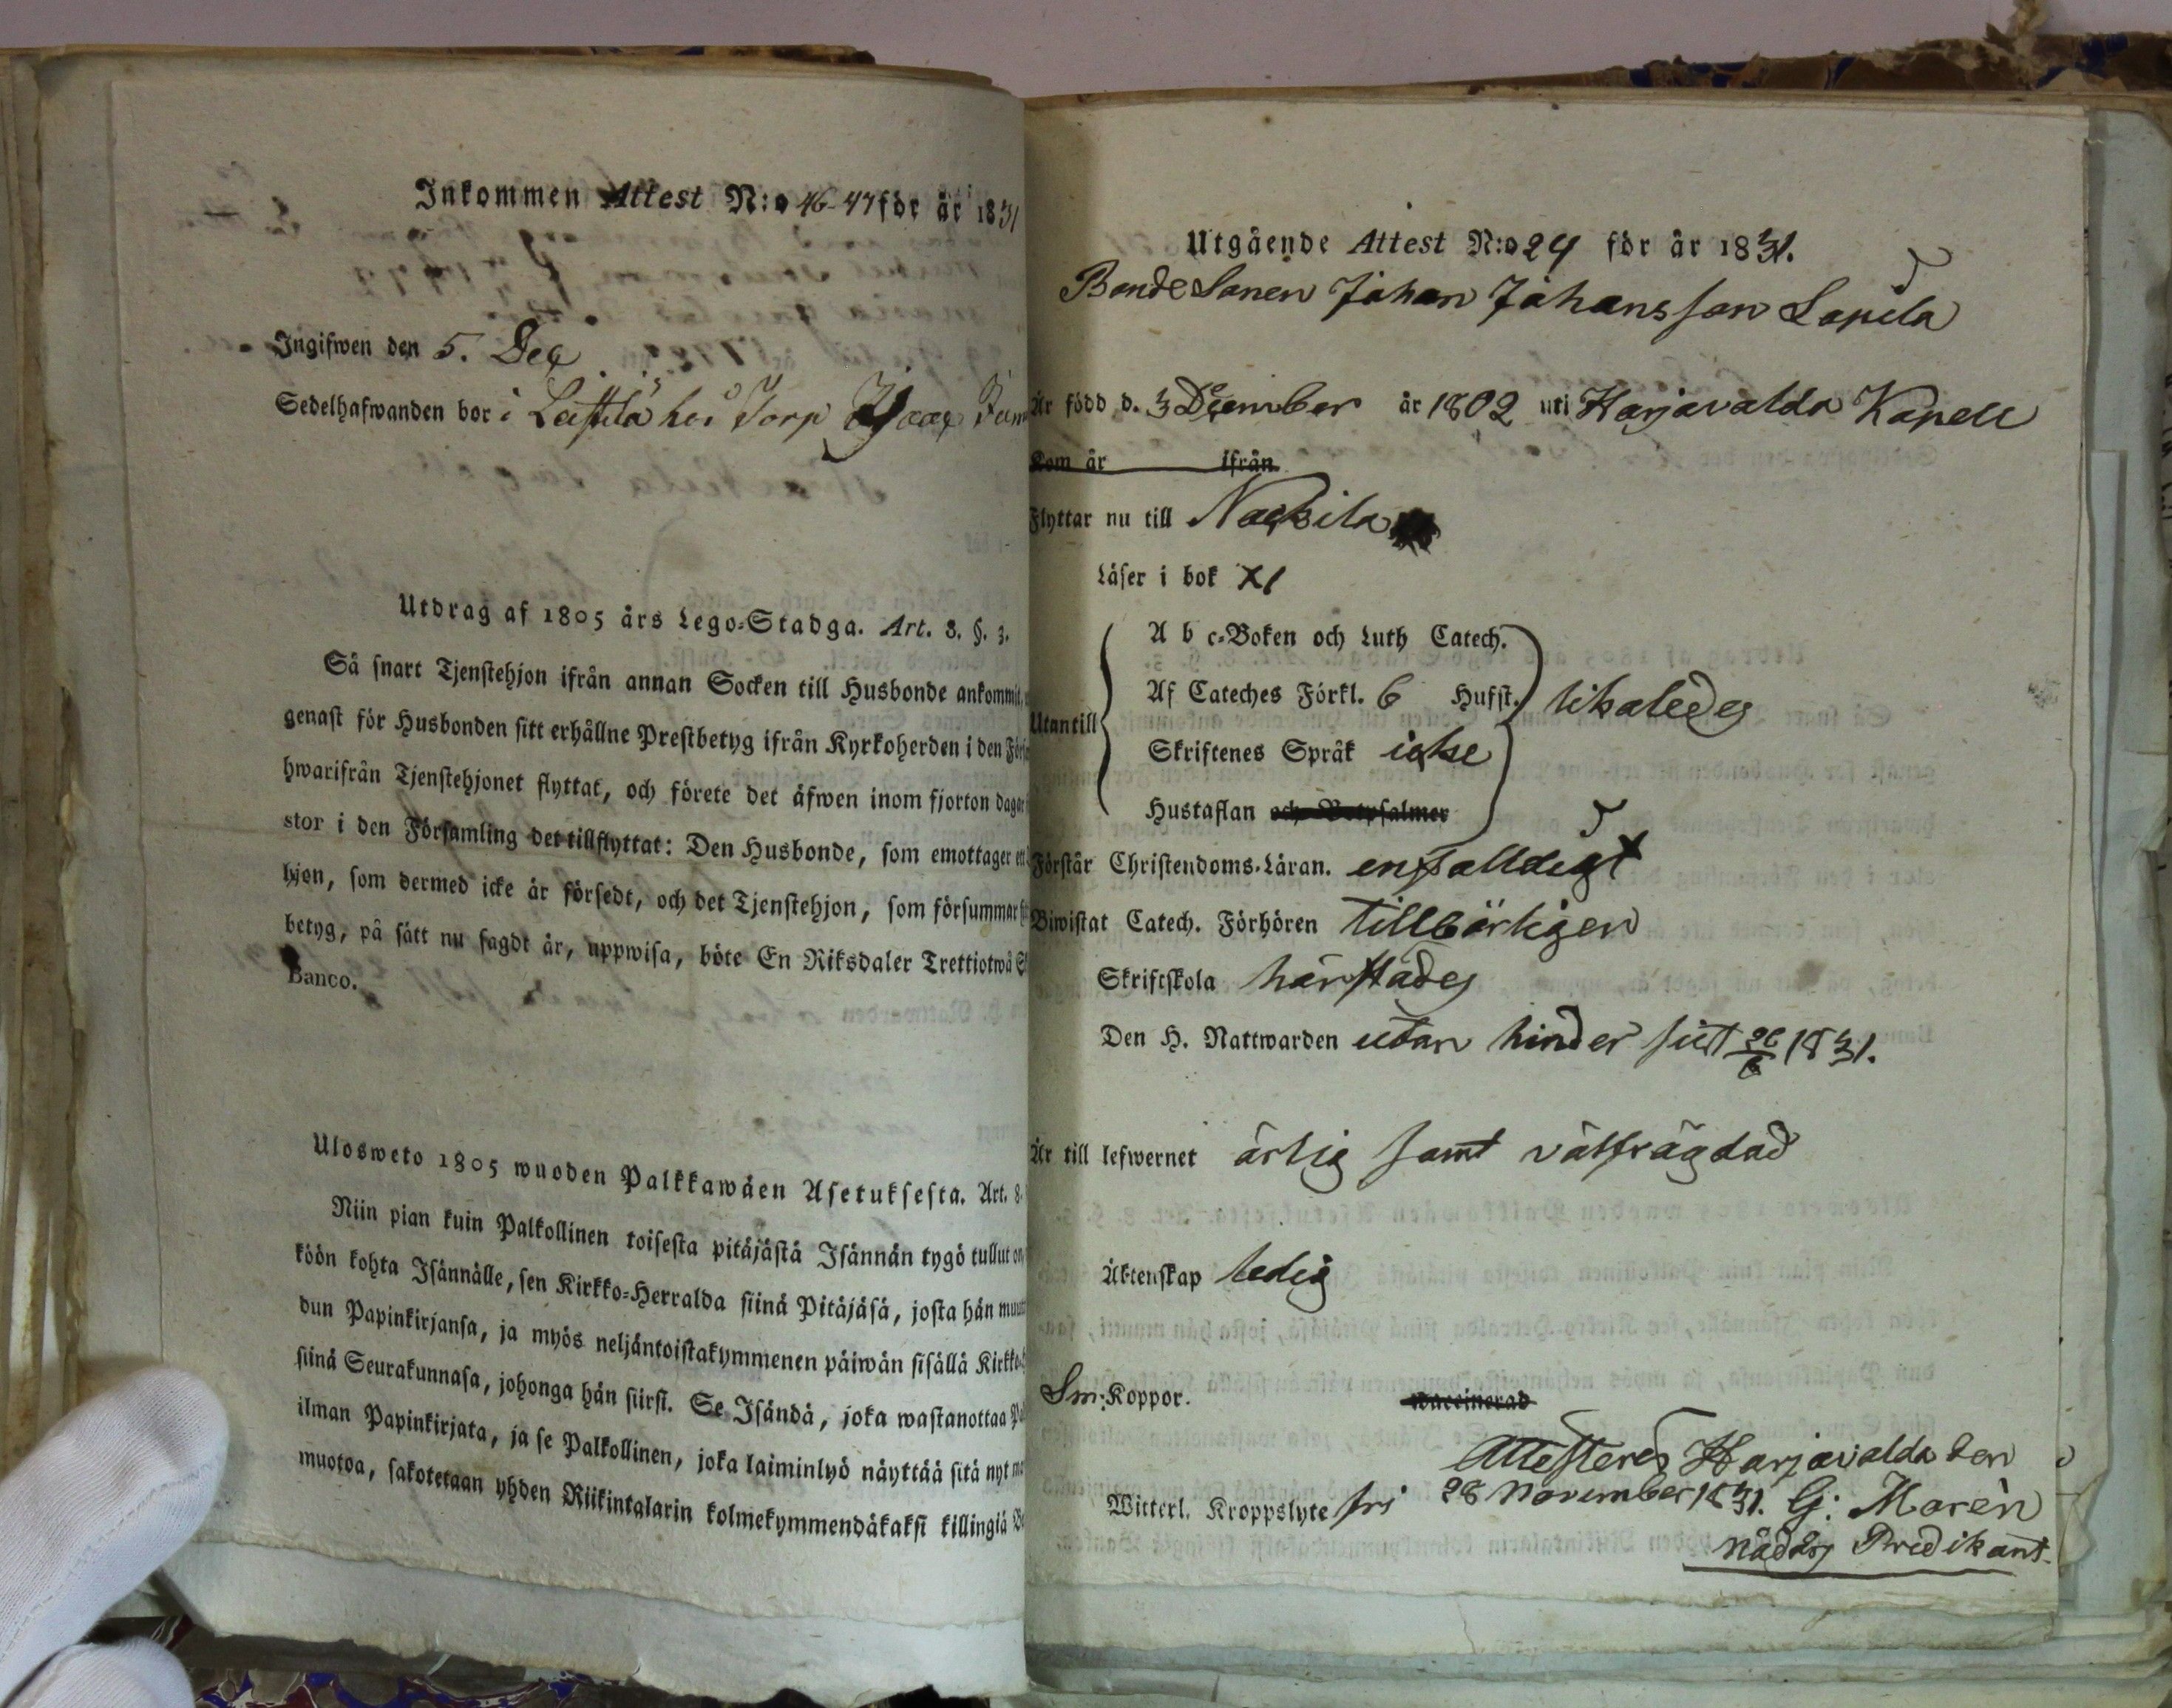 Inkommen Attest N:o 46-47 för år 1831
Ingifwen den 5. Dec
Sedelhafwanden bor i hos Torp Isaac
Utdrag af 1805 års Lego-Stadga. Art. 8. §. 3.
Så snart Tjenstehjon ifrån annan Socken till Husbonde ankommit,
genast för Husbonden sitt erhållne Prestbetyg ifrån Kyrkoherden i den
hwarifrån Tjenstehjonet flyttat, och förete det äfwen inom fjorton dagar
stor i den Församling det tillflyttat: Den Husbonde, som emottager
hjon, som dermed icke är försedt, och det Tjenstehjon, som försummar
betyg, på sätt nu sagdt är, uppwisa, böte En Riksdaler Trettiotwå
Banco.
Ulosweto 1805 wuoden Palkkawäen Asetuksesta. Art. 8.
Niin pian kuin Palkollinen toisesta pitäjästä Isännän tygö tullut on,
köön kohta Isännälle, sen Kirkko-Herralda siinä Pitäjäsä, josta hän
dun Papinkirjansa, ja myös neljäntoistakymmenen päiwän sisällä
siinä Seurakunnasa, johonga hän siirsi. Se Isändä, joka wastanottaa
ilman Papinkirjata, ja se Palkollinen, joka laiminlyö näyttää sitä nyt
muotoa, sakotetaan yhden Riikintalarin kolmekymmendäkaksi killingiä
Utgående Attest N:o 24 för år 1831.
BondeSonen Johan Johansson Lapila
Är född d. 3 December år 1802 uti Harjavalda Kapell
Kom år ifrån
Flyttar nu till Nackila
Läser i bok X1
A b c-Boken och Luth Catech.
Af Cateches Förkl. 6 Hufst.
Utantill likaledes
Skriftenes Språk icke
Hustaflan och Botpsalmer
Förstår Christendoms-Läran. enfalldigt
Biwistat Catech. Förhören tillbörligen
Skriftskola härstädes
Den H. Nattwarden utan hinder sist 26/6 1831.
Är till lefwernet ärlig samt välfrägdad
Äktenskap ledig
Sm: Koppor. waccinerad
Attesteres Harjavalda den
Witterl. Kroppslyte fri 28 November 1831. G: Morén
Nådårs Predikant.